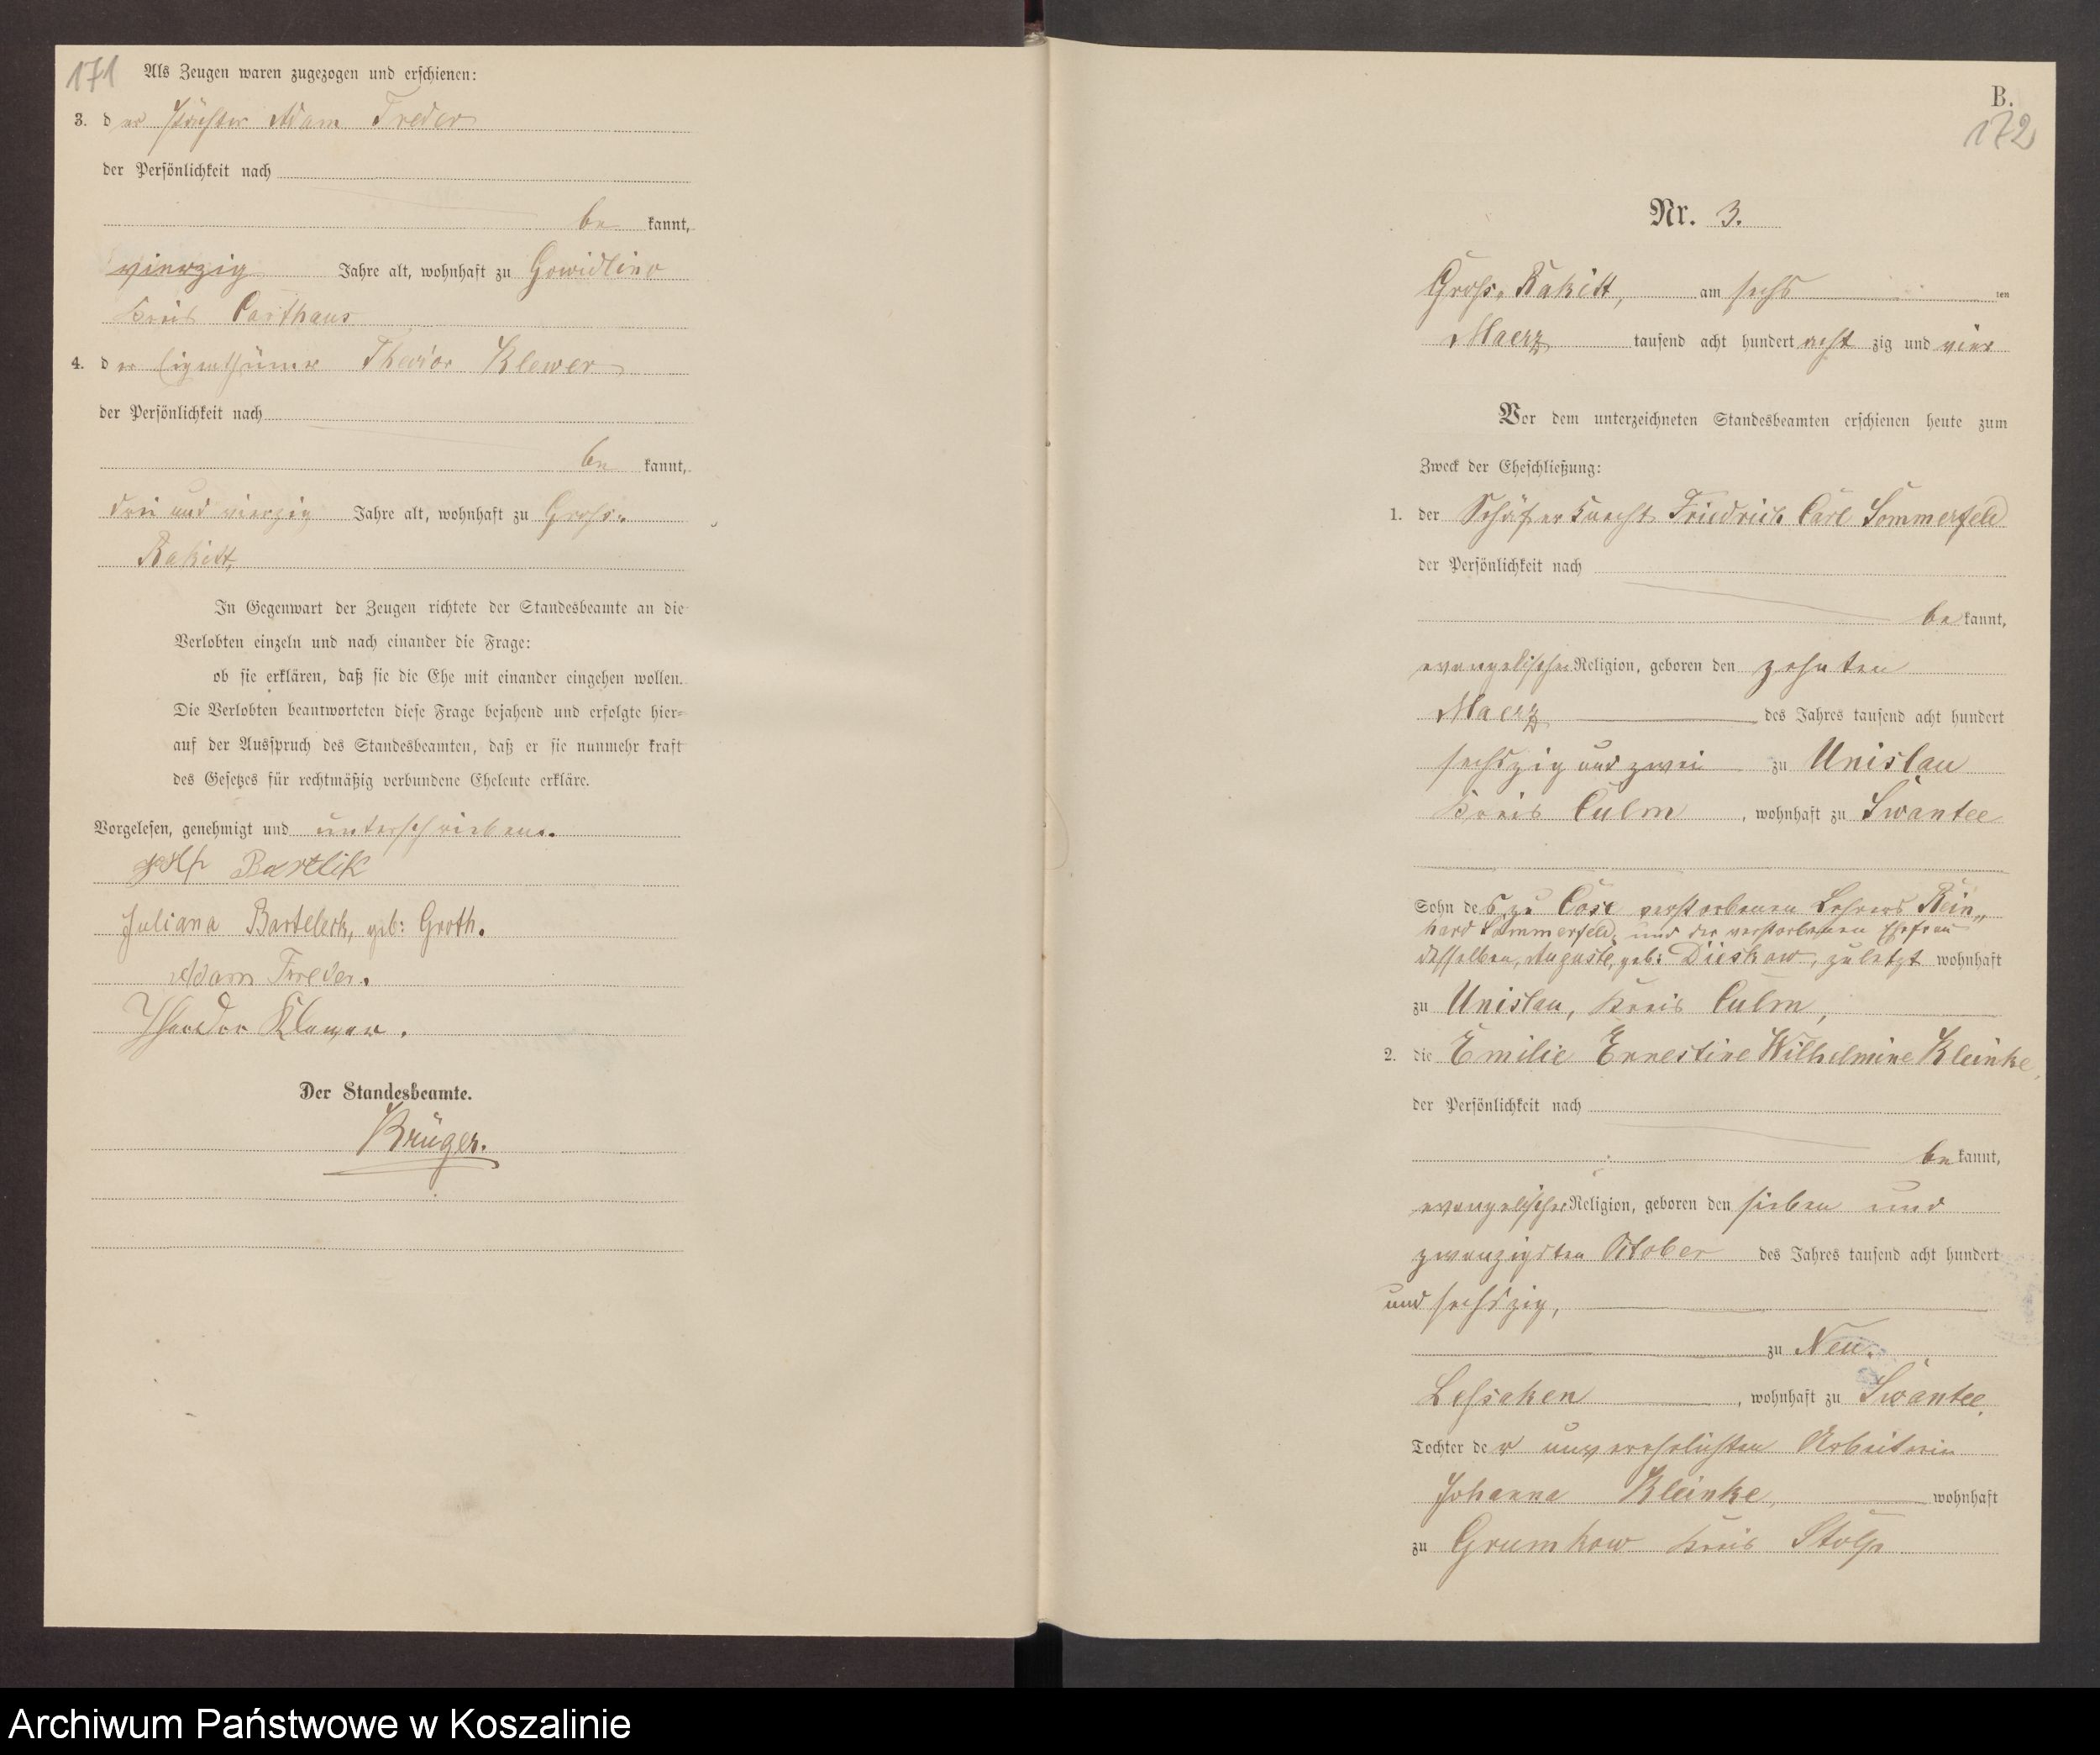 171
Als Zeugen waren zugezogen und erschienen:
3. der Pächter Adam Treder
der Persönlichkeit nach
be kannt,
vierzig Jahre alt, wohnhaft zu Gowidlino
Kreis Carthaus
4. der Eigenthümer Theodor Klewer
der Persönlichkeit nach
be kannt,
drei und vierzig Jahre alt, wohnhaft zu Gross-
Rakitt,
In Gegenwart der Zeugen richtete der Standesbeamte an die
Verlobten einzeln und nach einander die Frage:
ob sie erklären, daß sie die Ehe mit einander eingehen wollen.
Die Verlobten beantworteten diese Frage bejahend und erfolgte hier-
auf der Ausspruch des Standesbeamten, daß er sie nunmehr kraft
des Gesetzes für rechtmäßig verbundene Eheleute erkläre.
Vorgelesen, genehmigt und unterschrieben.
Bartlik
Juliana Barteleck, geb: Groth.
Adam Treder.
Theodor Klewer.
Der Standesbeamte.
Krüger.
B.
172
Nr. 3.
Gross-Rakitt, am sechs ten
Maerz tausend acht hundert acht zig und vier
Vor dem unterzeichneten Standesbeamten erschienen heute zum
Zweck der Eheschließung:
1. der Schäferknecht Friedrich Carl Sommerfeld
der Persönlichkeit nach
be kannt,
evangelischer Religion, geboren den zehnten
Maerz des Jahres tausend acht hundert
sechszig und zwei zu Unislau
Kreis Culm, wohnhaft zu Swantee
Sohn des zu Cose verstorbenen Lehrers Rein„
hard Sommerfeld, und der verstorbenen Ehefrau
desselben, Auguste, geb: Düskow, zuletzt wohnhaft
zu Unislau, Kreis Culm,
2. die Emilie Ernestine Wilhelmine Kleinke,
der Persönlichkeit nach
be kannt,
evangelischer Religion, geboren den sieben und
zwanzigsten October des Jahres tausend acht hundert
und sechszig,
zu Neu-
Lessaken, wohnhaft zu Swantee,
Tochter der unverehelichten Arbeiterin
Johanna Kleinke, wohnhaft
zu Grumkow Kreis Stolp
Archiwum Państwowe w Koszalinie